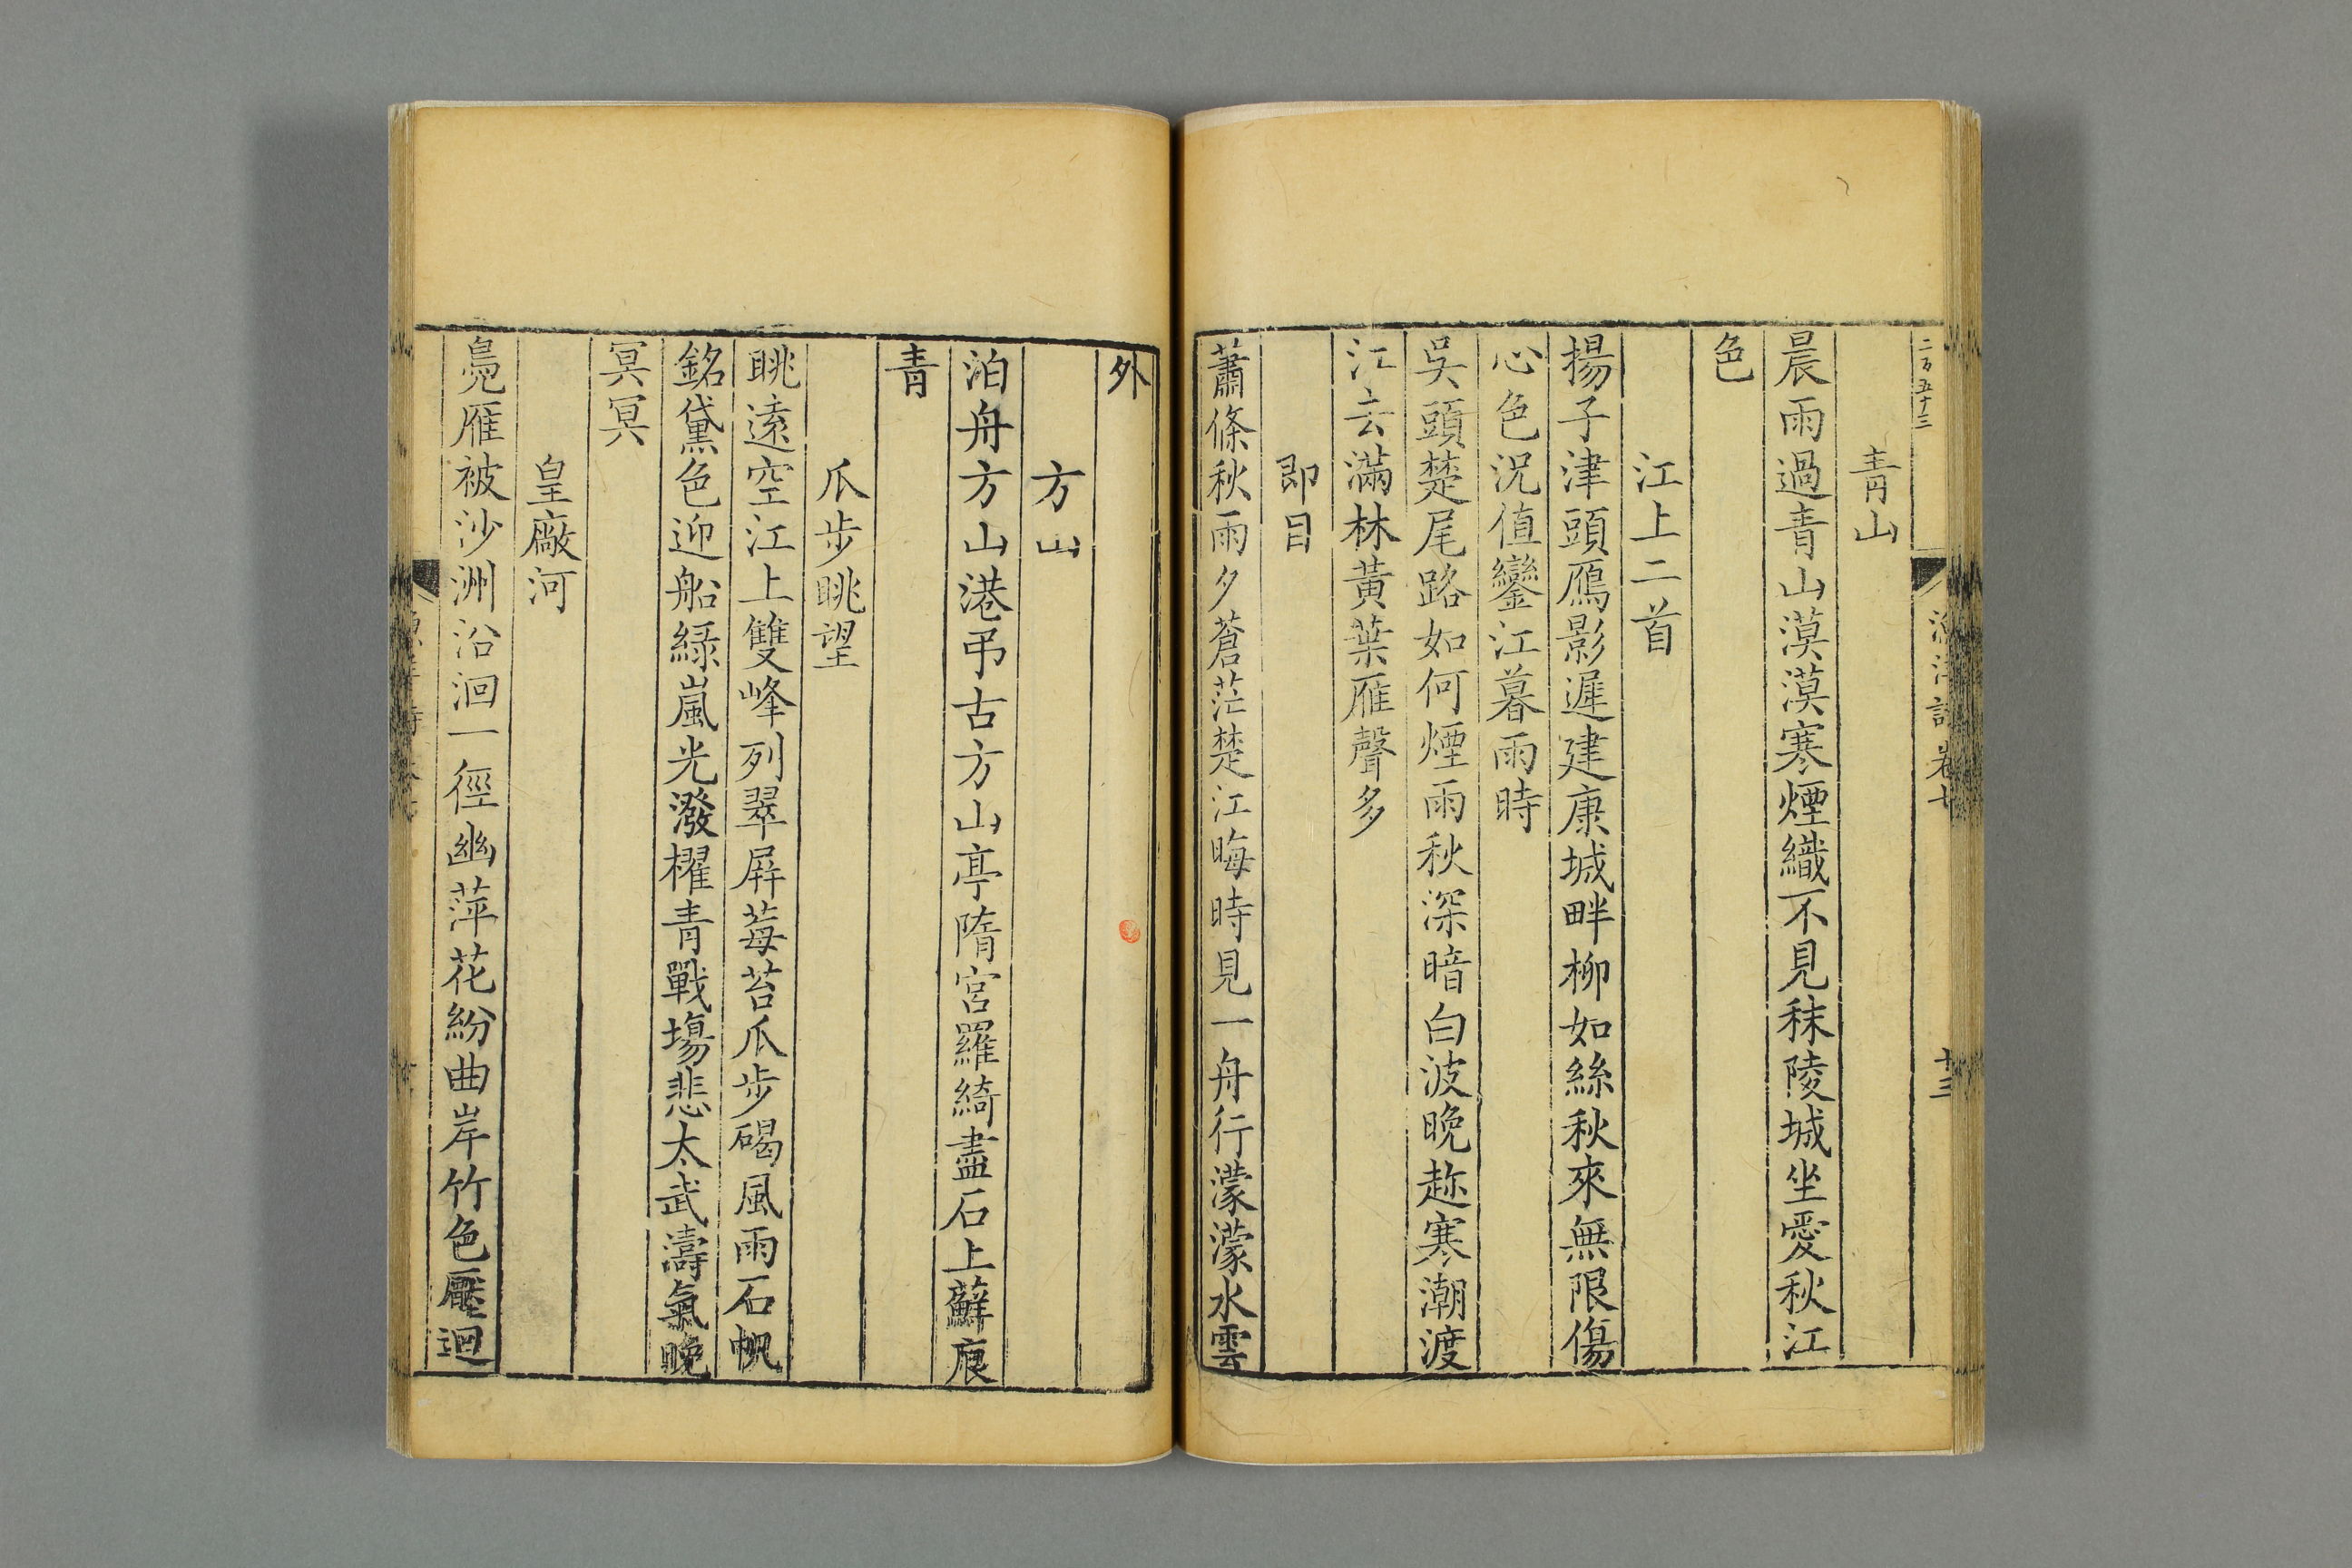 二百五十三
漁洋詩卷七
十三
青山
晨雨過青山漠漠寒煙織不見秣陵城坐愛秋江
色
江上二首
揚子津頭鴈影遲建康城畔柳如絲秋來無限傷
心色況值鑾江暮雨時
吳頭楚尾路如何煙雨秋深暗白波晚趂寒潮渡
江去滿林黃葉雁聲多
即目
蕭條秋雨夕蒼茫楚江晦時見一舟行濛濛水雲
外
方山
泊舟方山港弔古方山亭隋宮羅綺盡石上蘚痕
青
瓜步眺望
眺遠空江上雙峰列翠屏莓苔瓜步碣風雨石帆
銘黛色迎船綠嵐光潑櫂青戰塲悲太武濤氣晚
冥冥
皇廠河
鳧雁被沙洲沿洄一徑幽萍花紛曲岸竹色壓迴